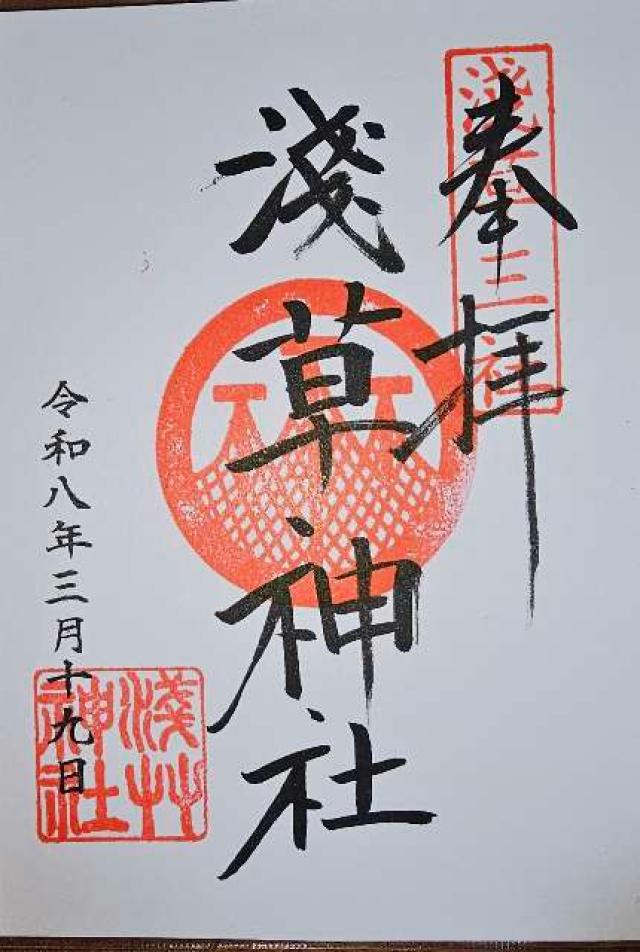 奉拝
淺草三社
淺草神社
令和八年三月十九日
淺艸
神社